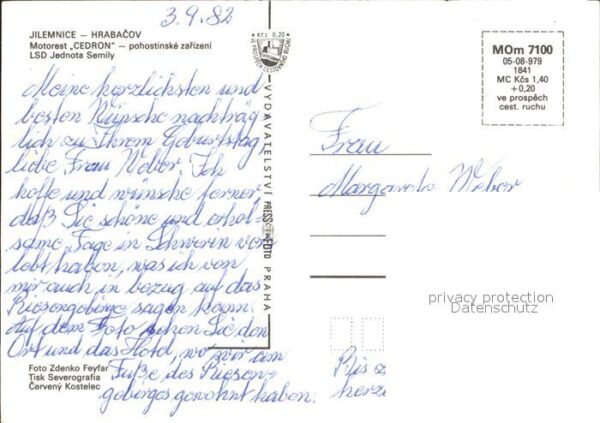 3.9.82
JILEMNICE — HRABAČOV
Motorest „CEDRON" — pohostinské zařízení
LSD Jednota Semily
Kčs 0,20
VE PROSPĚCH CESTOVNÍHO RUCHU
MOm 7100
05-08-979
1841
MC Kčs 1,40
+0,20
ve prospěch
cest. ruchu
VYDAVATELSTVÍ PRESSFOTO PRAHA
Meine herzlichsten und
besten Wünsche nachträg
lich zu Ihrem Geburtstag
liebe Frau Weber. Ich
hoffe und wünsche ferner,
daß Sie schöne und erhol-
same Tage in Schwerin ver
lebt haben, was ich von
mir auch in bezug auf das
Riesengebirge sagen kann.
Auf dem Foto sehen Sie den
Ort und das Hotel, wo wir am
Fuße des Riesen-
gebirges gewohnt haben.
Bis
herz
Frau
Margarete Weber
privacy protection
Datenschutz
Foto Zdenko Feyfar
Tisk Severografia
Červený Kostelec